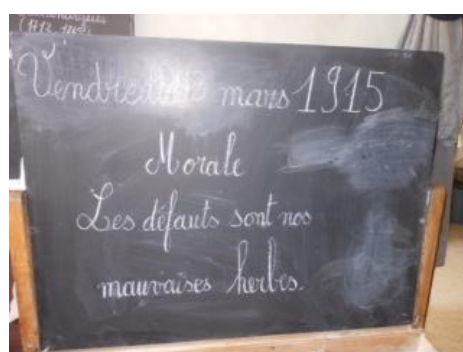 Vendredi mars 1915
Morale
Les défauts sont nos
mauvaises herbes.